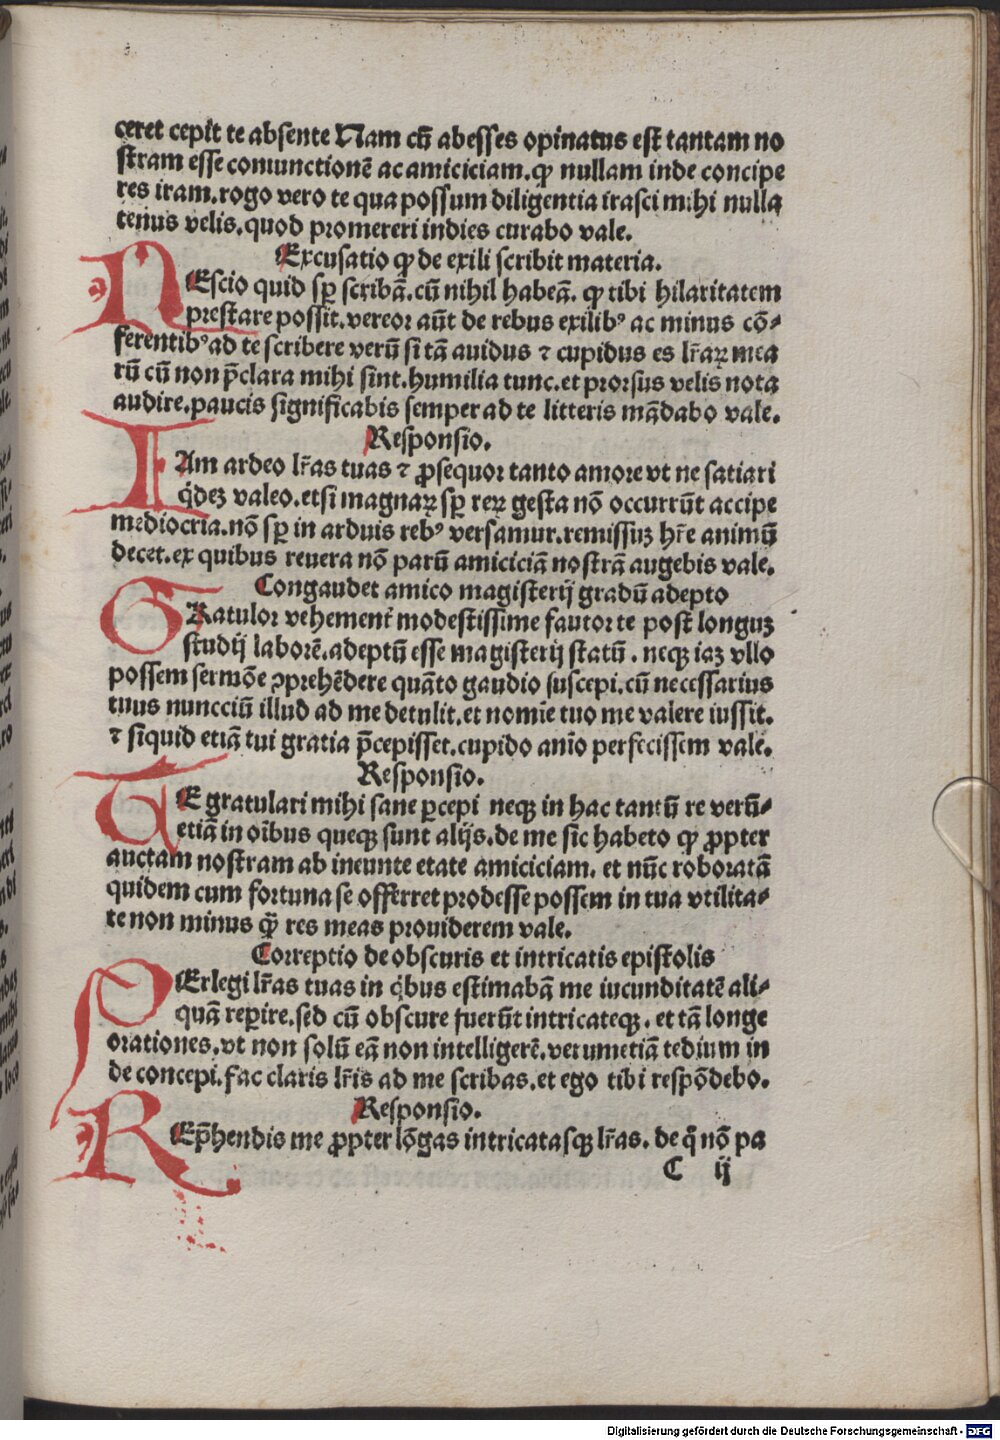 ceret cepit te absente Nam cū abesses opinatus est tantam no
stram esse coniunctionē ac amiciciam. ꝙ nullam inde concipe
res iram. rogo vero te qua possum diligentia irasci mihi nulla
tenus velis. quod promereri indies curabo vale.
Excusatio ꝙ de exili scribit materia.
NEscio quid sꝑ scribā. cū nihil habeā. ꝙ tibi hilaritatem
prestare possit. vereor aūt de rebus exilibꝰ ac minus cō⸗
ferentibꝰ ad te scribere verū si tā auidus ⁊ cupidus es lr̄aꝝ mea
rū cū non p̄clara mihi sint. humilia tunc. et prorsus velis nota
audire. paucis significabis semper ad te litteris mādabo vale.
Responsio.
IAm ardeo lr̄as tuas ⁊ ꝓsequor tanto amore vt ne satiari
q̇deꝫ valeo. etsi magnaꝝ sꝑ reꝝ gesta nō occurrūt accipe
mediocria. nō sꝑ in arduis rebꝰ versamur. remissiꝫ hr̄e animū
decet. ex quibus reuera nō parū amiciciā nostrā augebis vale.
Congaudet amico magisterij gradū adepto
GRatulor vehemenṫ modestissime fautor te post longuꝫ
studij laborē. adeptū esse magisterij statū. neqꝫ iaꝫ vllo
possem sermōe ꝯprehēdere quāto gaudio suscepi. cū necessarius
tuus nuncciū illud ad me detulit. et nomīe tuo me valere iussit.
⁊ siquid etiā tui gratia p̄cepisset. cupido anīo perfecissem vale.
Responsio.
TE gratulari mihi sane ꝑcepi neqꝫ in hac tantū re verū⸗
etiā in oībus queqꝫ sunt alijs. de me sic habeto ꝙ ꝓpter
auctam nostram ab ineunte etate amiciciam. et nūc roboratā
quidem cum fortuna se offerret prodesse possem in tua vtilita⸗
te non minus q̄ȝ res meas prouiderem vale.
Correptio de obscuris et intricatis epistolis
PErlegi lr̄as tuas in q̇bus estimabā me iucunditatē ali⸗
quā reꝑire. sed cū obscure fuerūt intricateqꝫ. et tā longe
orationes. vt non solū eā non intelligerē. verumetiā tedium in
de concepi. fac claris lr̄is ad me scribas. et ego tibi respōdebo.
Responsio.
REp̄hendis me ꝓpter lōgas intricatasqꝫ lr̄as. de q̊ nō pa
C ij
Digitalisierung gefördert durch die Deutsche Forschungsgemeinschaft - DFG